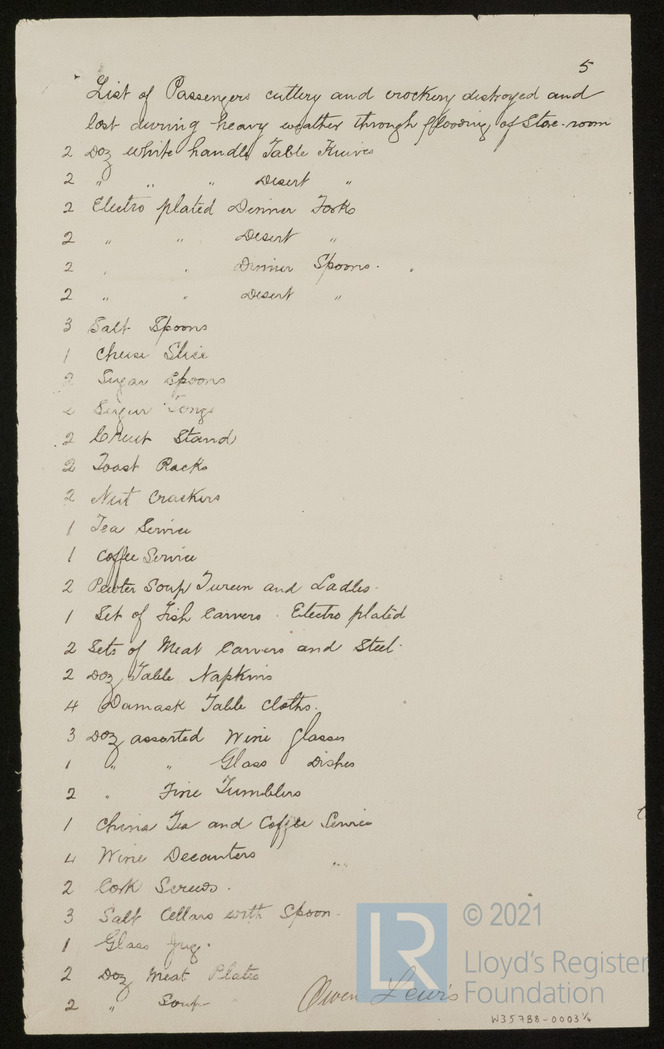 5
List of Passengers cuttery and crockery distroyed and
lost during heavy weather through flooding of Store-room
2 Doz white handle Table Knives
2 " " " Desert "
2 Electro plated Dinner Forks
2 " " Desert "
2 " " Dinner Spoons.
2 " " Desert "
3 Salt Spoons
1 Cheese Slice
2 Sugar Spoons
2 Sugar Tongs
2 Cruit Stand
2 Toast Racks
2 Nut Crackers
1 Tea Service
1 Coffee Service
2 Pewter Soup Tureen and Ladles.
1 Set of Fish Carvers. Electro plated
2 Sets of Meat Carvers and Steel.
2 Doz Table Napkins
4 Damask Table Cloths.
3 Doz assorted Wine Glasses
1 " " Glass Dishes
2 " Fine Tumblers
1 China Tea and Coffee Service
4 Wine Decanters
2 Cork Screws.
3 Salt Cellars with Spoon.
1 Glass Jug.
2 Doz Meat Plates
2 " Soup
Owen Lewis
W35788-0003 1/6
LR
© 2021
Lloyd's Register
Foundation